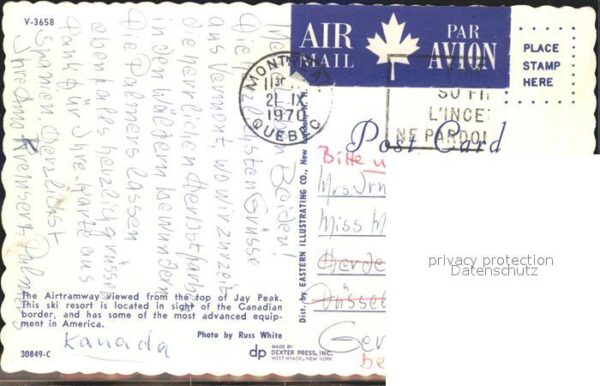 V-3658
AIR MAIL
PAR AVION
PLACE
STAMP
HERE
MONTREAL
21 IX
1970
QUEBEC
L'INCE
NE PARDO
Post Card
Bitte
Mrs
Miss M
Düssel
Ger
be
Beiden!
Die herzlichsten Grüsse
aus Vermont wo wir zurzeit
die herrlichen Herbstfarben
in den Wäldern bewundern
Die Palmers lassen
ebenfalls herzlich grüssen
Dank für Ihre Karte aus
Spanien Herzlichst
Ihre
Kanada
The Airtramway viewed from the top of Jay Peak.
This ski resort is located in sight of the Canadian
border, and has some of the most advanced equip-
ment in America.
Photo by Russ White
30849-C
dp
MADE BY
DEXTER PRESS, INC.
WEST NYACK, NEW YORK
Dist. by EASTERN ILLUSTRATING CO., New London, N. H.
privacy protection
Datenschutz